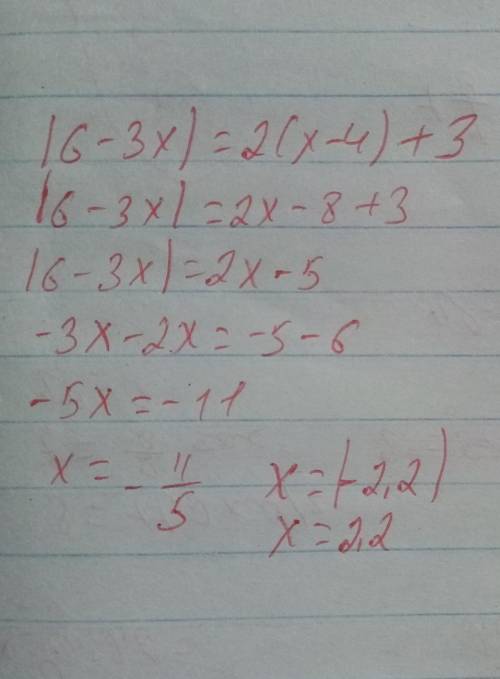 |6-3x|=2(x-4)+3
|6-3x|=2x-8+3
|6-3x|=2x-5
-3x-2x=-5-6
-5x=-11
x=-11/5 x=|-2,2|
x=2,2